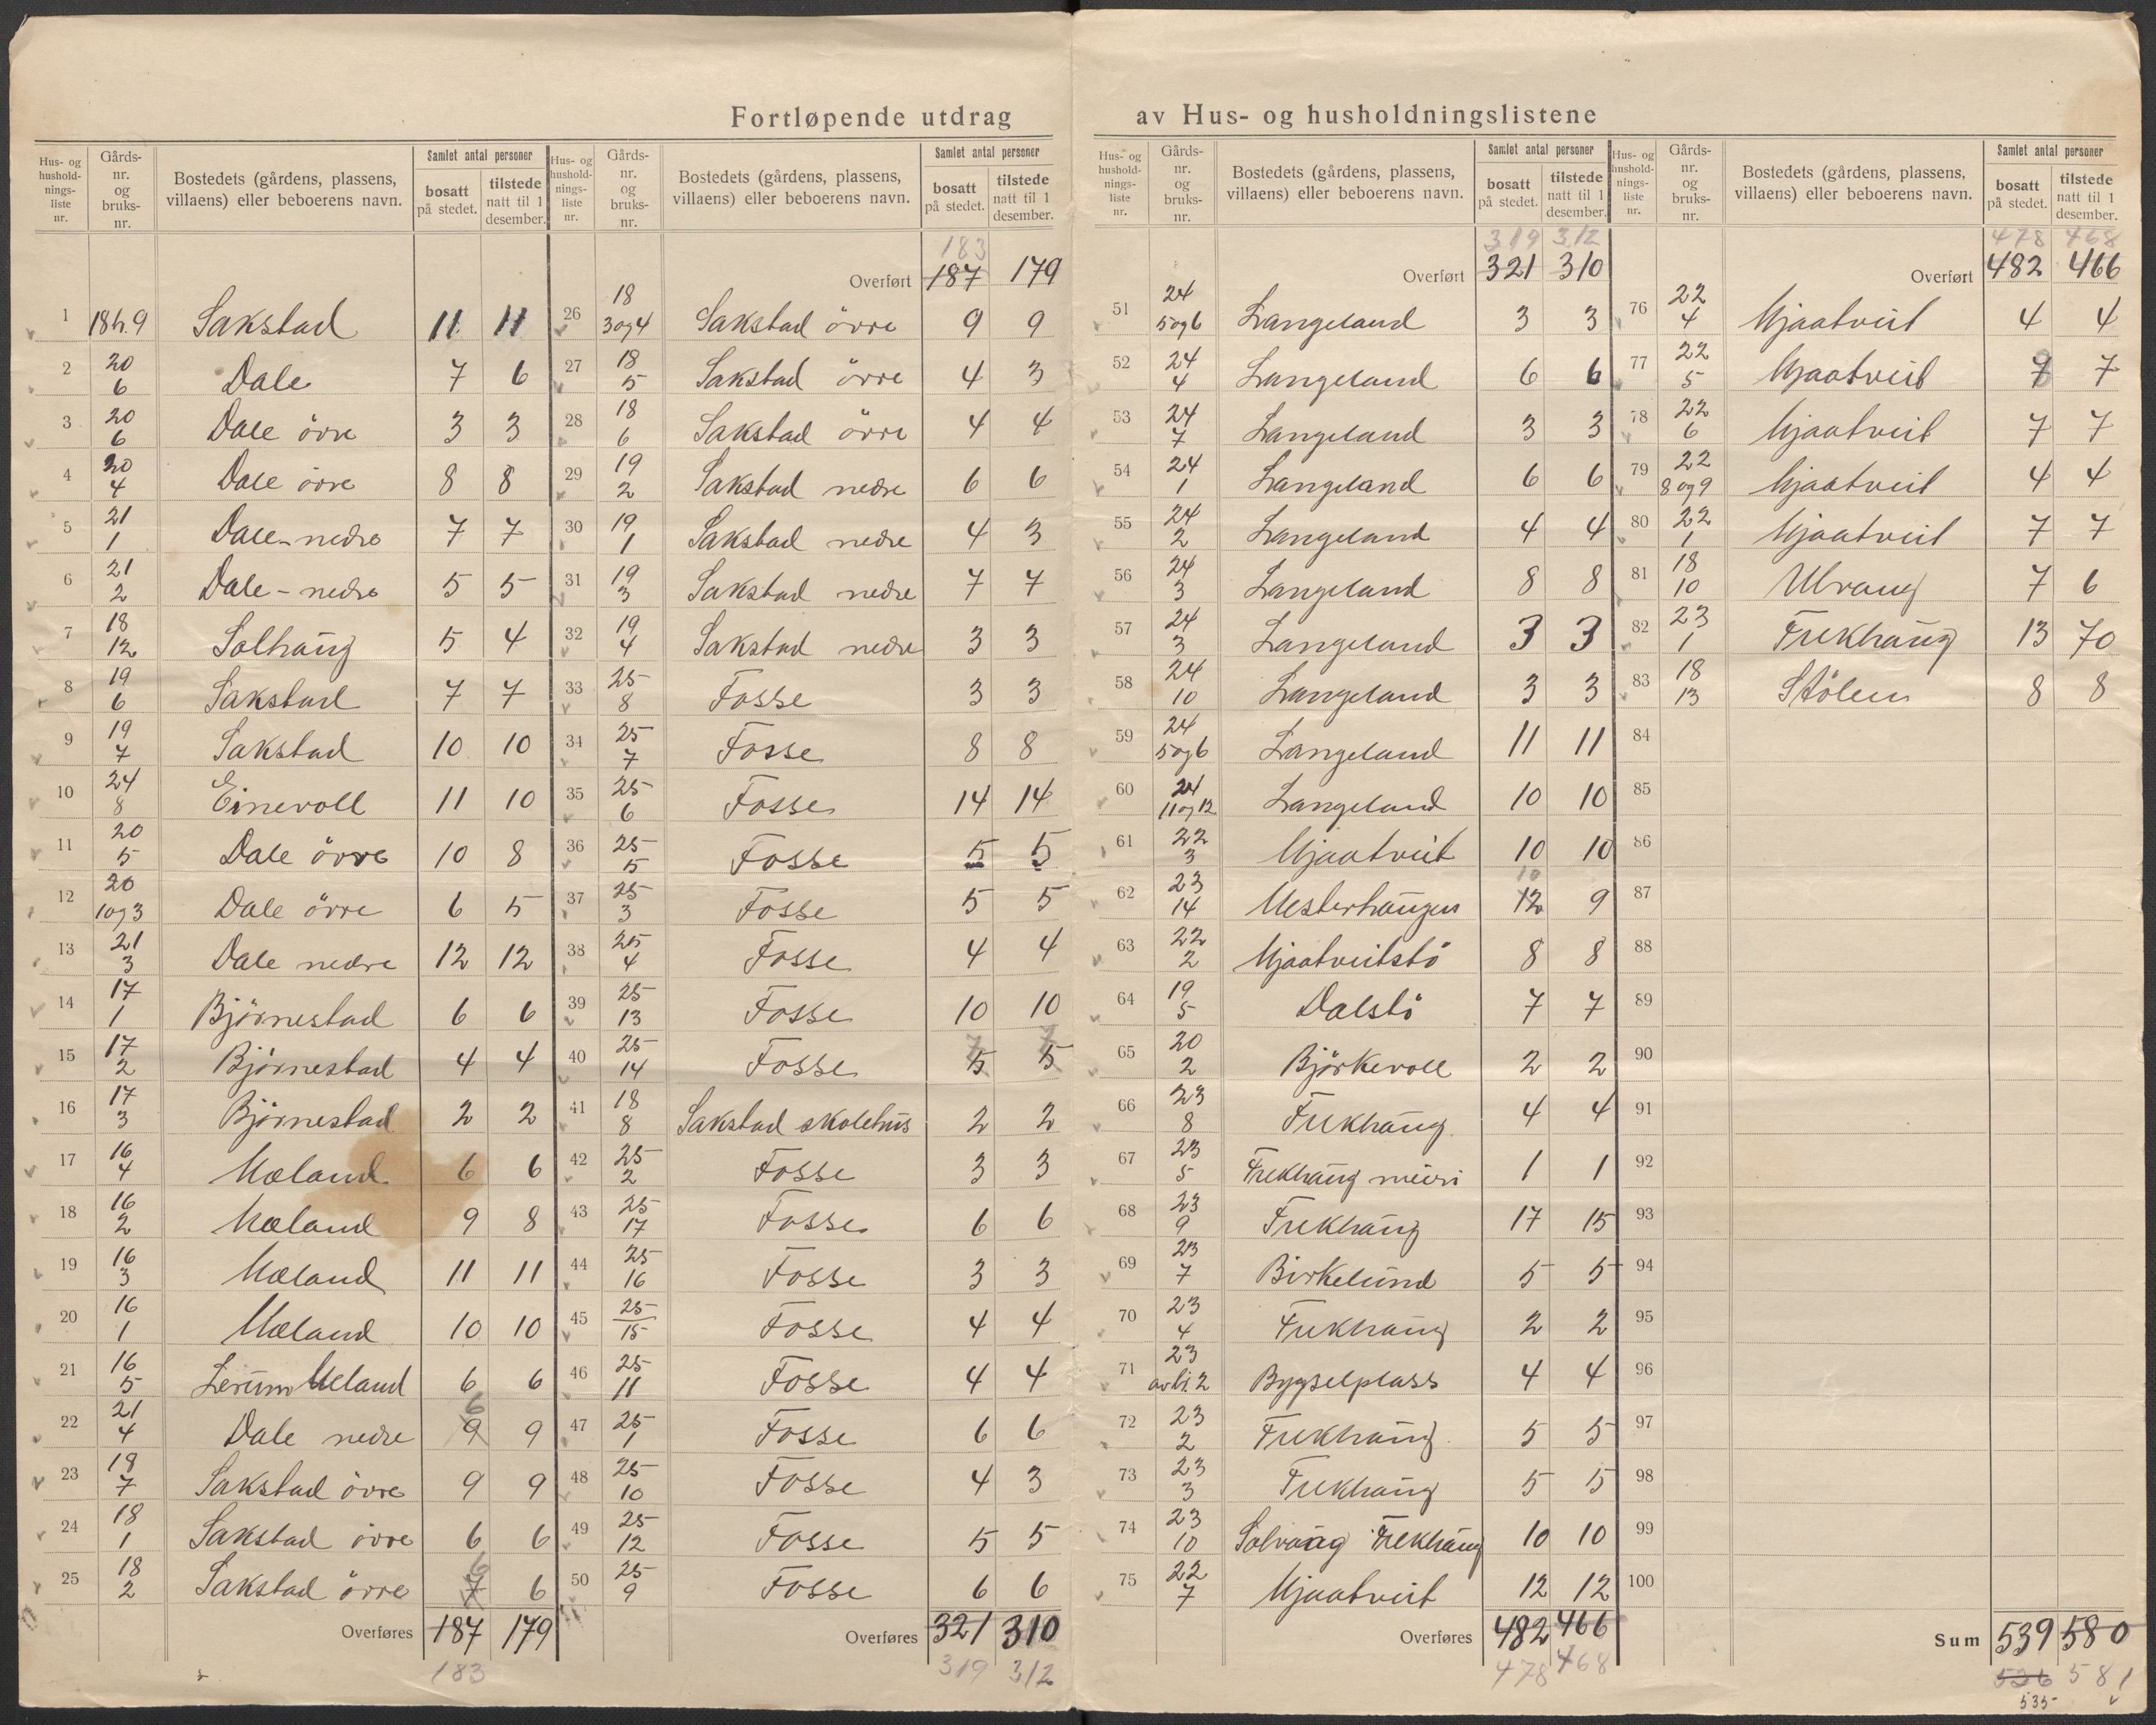 Fortløpende utdrag av Hus- og husholdningslistene
Hus- og hushold-nings-liste nr. | Gårds-nr. og bruks-nr. | Bostedets (gårdens, plassens, villaens) eller beboerens navn. | Samlet antal personer | bosatt på stedet. | tilstede natt til 1 desember.
1 | 18 h. 9 | Sakstad | 11 | 11
2 | 20 6 | Dale | 7 | 6
3 | 20 6 | Dale övre | 3 | 3
4 | 20 4 | Dale övre | 8 | 8
5 | 21 1 | Dale-nedre | 7 | 7
6 | 21 2 | Dale-nedre | 5 | 5
7 | 18 12 | Solhaug | 5 | 4
8 | 19 6 | Sakstad | 7 | 7
9 | 19 7 | Sakstad | 10 | 10
10 | 24 8 | Einevoll | 11 | 10
11 | 20 5 | Dale övre | 10 | 8
12 | 20 1og3 | Dale övre | 6 | 5
13 | 21 3 | Dale nedre | 12 | 12
14 | 17 1 | Björnestad | 6 | 6
15 | 17 2 | Björnestad | 4 | 4
16 | 17 3 | Björnestad | 2 | 2
17 | 16 4 | Mæland | 6 | 6
18 | 16 2 | Mæland | 9 | 8
19 | 16 3 | Mæland | 11 | 11
20 | 16 1 | Mæland | 10 | 10
21 | 16 5 | Lerum Meland | 6 | 6
22 | 21 4 | Dale nedre | 9 6 | 9
23 | 18 7 | Sakstad övre | 9 | 9
24 | 18 1 | Sakstad övre | 6 | 6
25 | 18 2 | Sakstad övre | 7 6 | 6
Overføres 187 179
183
Hus- og hushold-nings-liste nr. | Gårds-nr. og bruks-nr. | Bostedets (gårdens, plassens, villaens) eller beboerens navn. | Samlet antal personer | bosatt på stedet. | tilstede natt til 1 desember.
183
Overført 187 179
26 | 18 3og4 | Sakstad övre | 9 | 9
27 | 18 5 | Sakstad övre | 4 | 3
28 | 18 6 | Sakstad övre | 4 | 4
29 | 19 2 | Sakstad nedre | 6 | 6
30 | 19 1 | Sakstad nedre | 4 | 3
31 | 19 3 | Sakstad nedre | 7 | 7
32 | 19 4 | Sakstad nedre | 3 | 3
33 | 25 8 | Fosse | 3 | 3
34 | 25 7 | Fosse | 8 | 8
35 | 25 6 | Fosse | 14 | 14
36 | 25 5 | Fosse | 5 | 5
37 | 25 3 | Fosse | 5 | 5
38 | 25 4 | Fosse | 4 | 4
39 | 25 13 | Fosse | 10 | 10
40 | 25 14 | Fosse | 5 7 | 5 7
41 | 18 8 | Sakstad skolehus | 2 | 2
42 | 25 2 | Fosse | 3 | 3
43 | 25 17 | Fosse | 6 | 6
44 | 25 16 | Fosse | 3 | 3
45 | 25 15 | Fosse | 4 | 4
46 | 25 11 | Fosse | 4 | 4
47 | 25 1 | Fosse | 6 | 6
48 | 25 10 | Fosse | 4 | 3
49 | 25 12 | Fosse | 5 | 5
50 | 25 9 | Fosse | 6 | 6
Overføres 321 310
319 312
Hus- og hushold-nings-liste nr. | Gårds-nr. og bruks-nr. | Bostedets (gårdens, plassens, villaens) eller beboerens navn. | Samlet antal personer | bosatt på stedet. | tilstede natt til 1 desember.
319 312
Overført 321 310
51 | 24 5og6 | Langeland | 3 | 3
52 | 24 4 | Langeland | 6 | 6
53 | 24 7 | Langeland | 3 | 3
54 | 24 1 | Langeland | 6 | 6
55 | 24 2 | Langeland | 4 | 4
56 | 24 3 | Langeland | 8 | 8
57 | 24 3 | Langeland | 3 | 3
58 | 24 10 | Langeland | 3 | 3
59 | 24 5og6 | Langeland | 11 | 11
60 | 24 11og12 | Langeland | 10 | 10
61 | 22 3 | Mjaatveit | 10 | 10
62 | 23 14 | Mesterhaugen | 12 10 | 9
63 | 22 2 | Mjaatveitstö | 8 | 8
64 | 19 5 | Dalstö | 7 | 7
65 | 20 2 | Björkevoll | 2 | 2
66 | 23 8 | Frekhaug | 4 | 4
67 | 23 5 | Frekhaug meieri | 1 | 1
68 | 23 9 | Frekhaug | 17 | 15
69 | 23 7 | Birkelund | 5 | 5
70 | 23 4 | Frekhaug | 2 | 2
71 | 23 av br. 2 | Bygselplass | 4 | 4
72 | 23 2 | Frekhaug | 5 | 5
73 | 23 3 | Frekhaug | 5 | 5
74 | 23 10 | Solvaag Frekhaug | 10 | 10
75 | 22 7 | Mjaatveit | 12 | 12
Overføres 482 466
478 468
Hus- og hushold-nings-liste nr. | Gårds-nr. og bruks-nr. | Bostedets (gårdens, plassens, villaens) eller beboerens navn. | Samlet antal personer | bosatt på stedet. | tilstede natt til 1 desember.
478 468
Overført 482 466
76 | 22 4 | Mjaatveit | 4 | 4
77 | 22 5 | Mjaatveit | 7 8 | 7
78 | 22 6 | Mjaatveit | 7 | 7
79 | 22 8og9 | Mjaatveit | 4 | 4
80 | 22 1 | Mjaatveit | 7 | 7
81 | 18 10 | Ulvang | 7 | 6
82 | 23 1 | Frekhaug | 13 | 70
83 | 18 13 | Stölen | 8 | 8
84
85
86
87
88
89
90
91
92
93
94
95
96
97
98
99
100
Sum 539 580
536 581
535